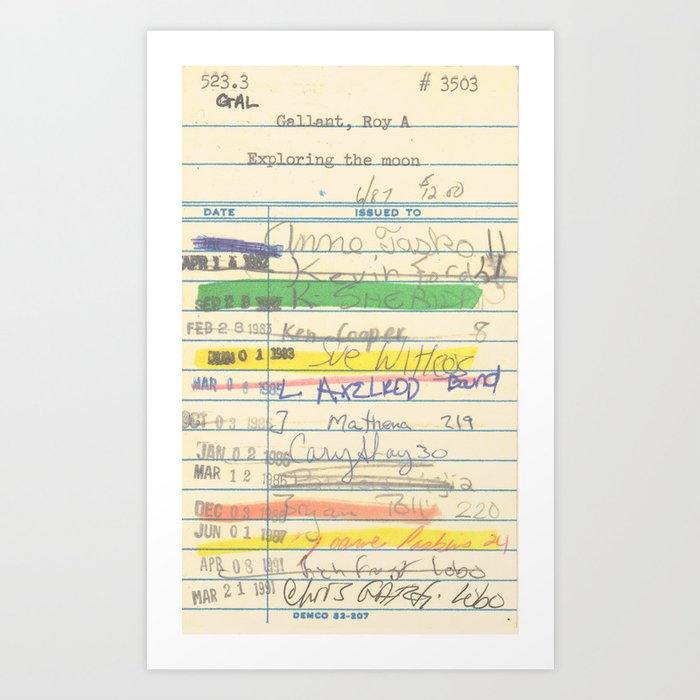 523.3 # 3503
GAL
Gallant, Roy A
Exploring the moon
6/87 $12.00
DATE ISSUED TO
Anne Tasko 11
APR 14 1982 Kevin Ford
SEP 28 K. SHERIDAN
FEB 28 1983 Ken Cooper 8
JUN 01 1983 Sue Wittcos
MAR 06 1985 L AXELROD Band
OCT 03 1985 J Mathena 219
JAN 02 1986 Cary 30
MAR 12 1986
DEC 03 1986 Bryan 220
JUN 01 1987 24
APR 08 1991 Lobo
MAR 21 1991 CHRIS Lobo
DEMCO 32-207